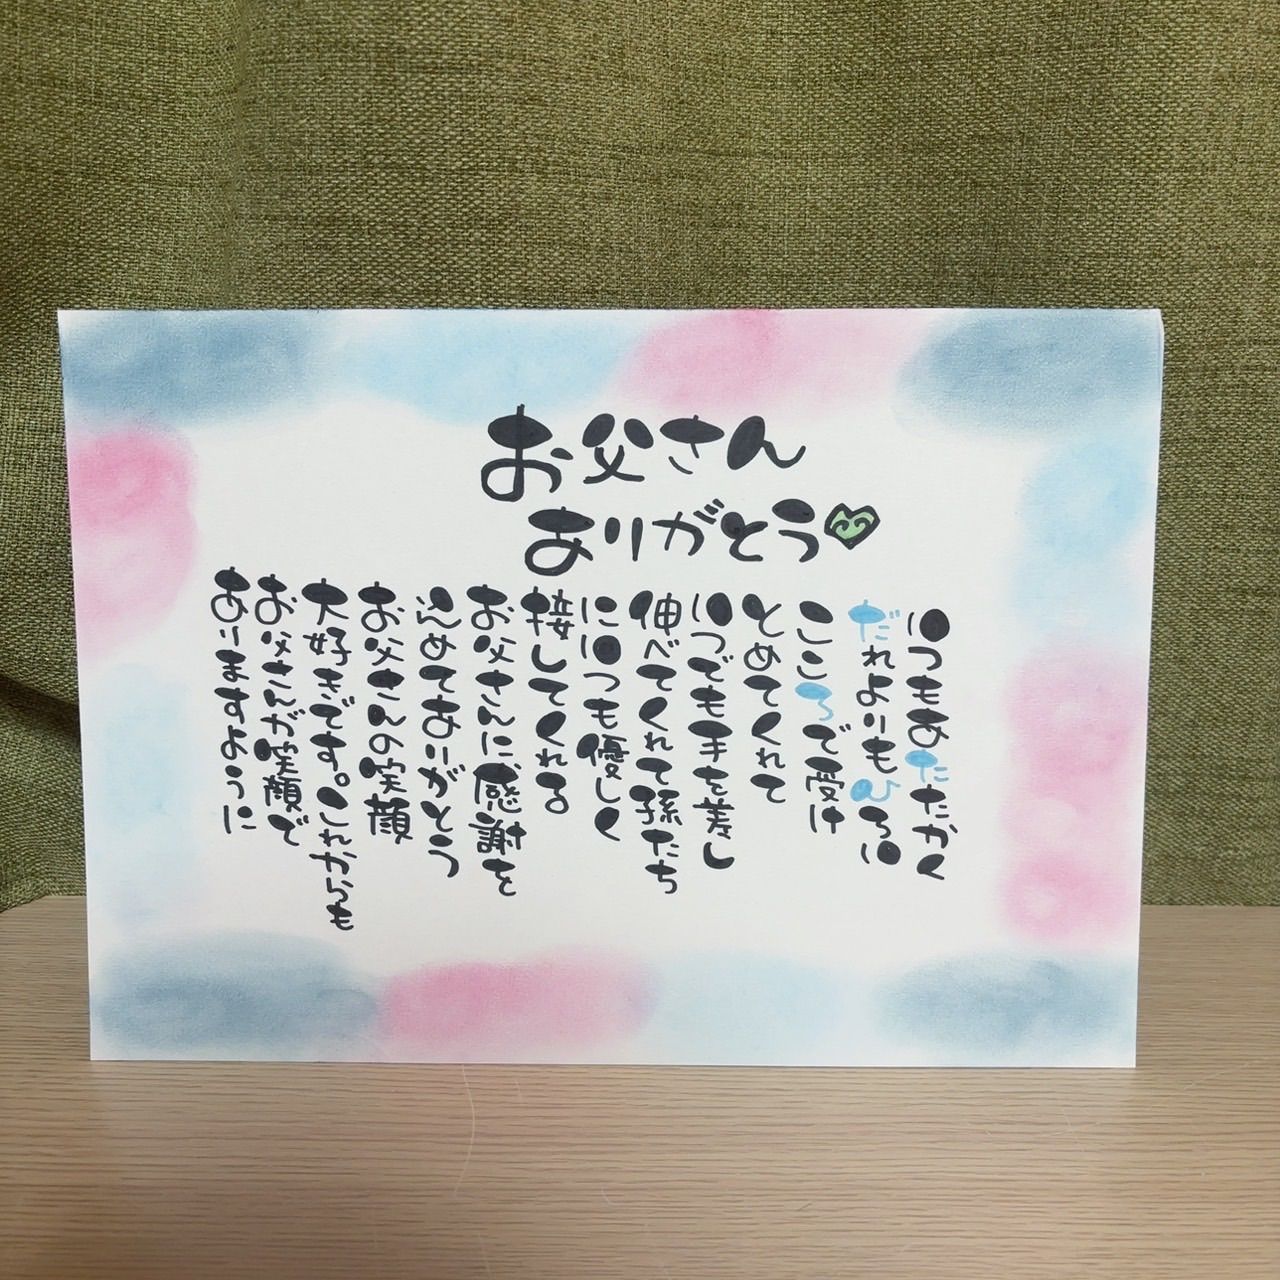 お父さん
ありがとう
いつもあたたかく
だれよりもひろい
こころで受け
とめてくれて
いつでも手を差し
伸べてくれて孫たち
にいつも優しく
接してくれる
お父さんに感謝を
込めてありがとう
お父さんの笑顔
大好きです。これからも
お父さんが笑顔で
ありますように